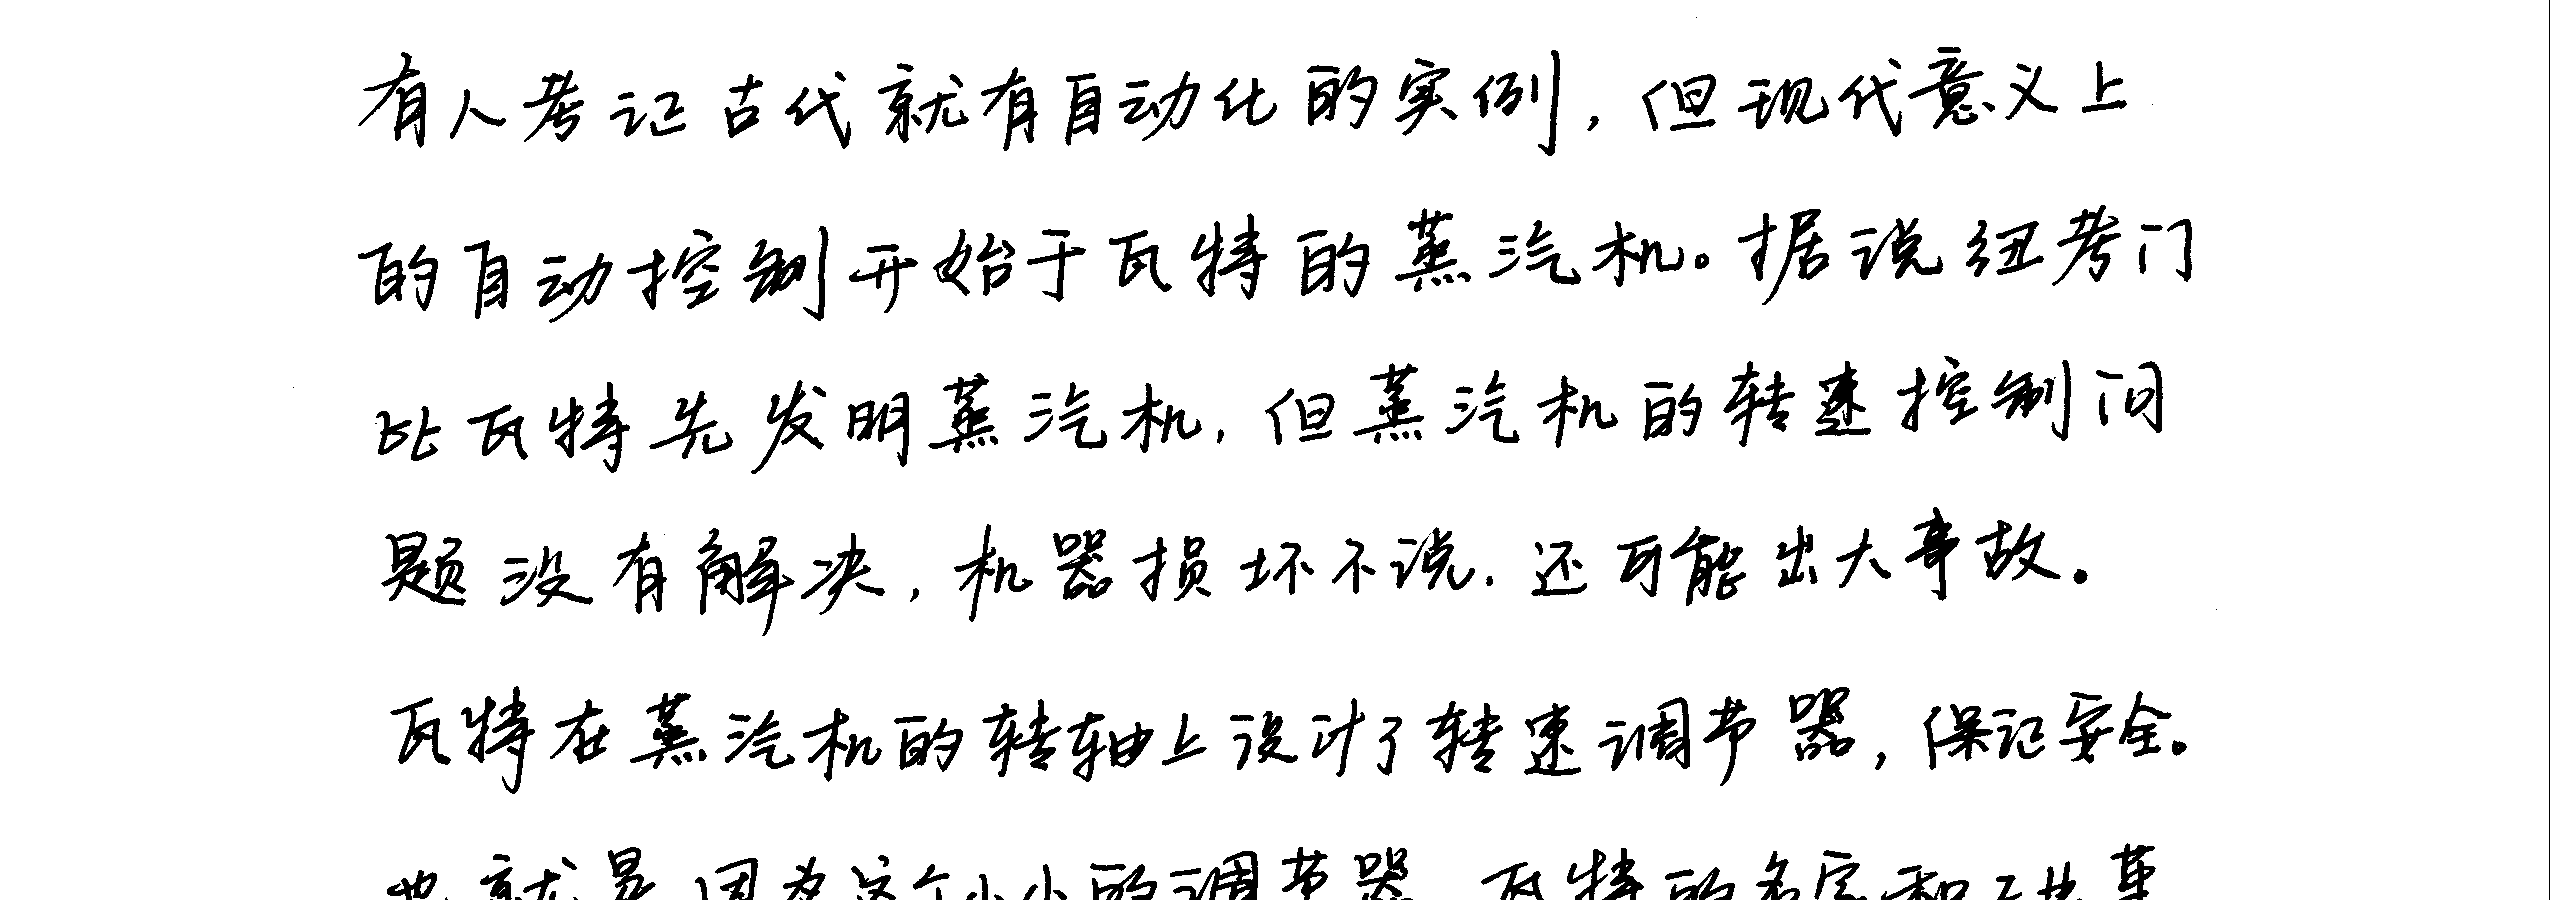 有人考证古代就有自动化的实例，但现代意义上
的自动控制开始于瓦特的蒸汽机。据说纽考门
比瓦特先发明蒸汽机，但蒸汽机的转速控制问
题没有解决，机器损坏不说，还可能出大事故。
瓦特在蒸汽机的转轴上设计了转速调节器，保证安全。
也就是因为这个小小的调节器，瓦特的名字和工业革